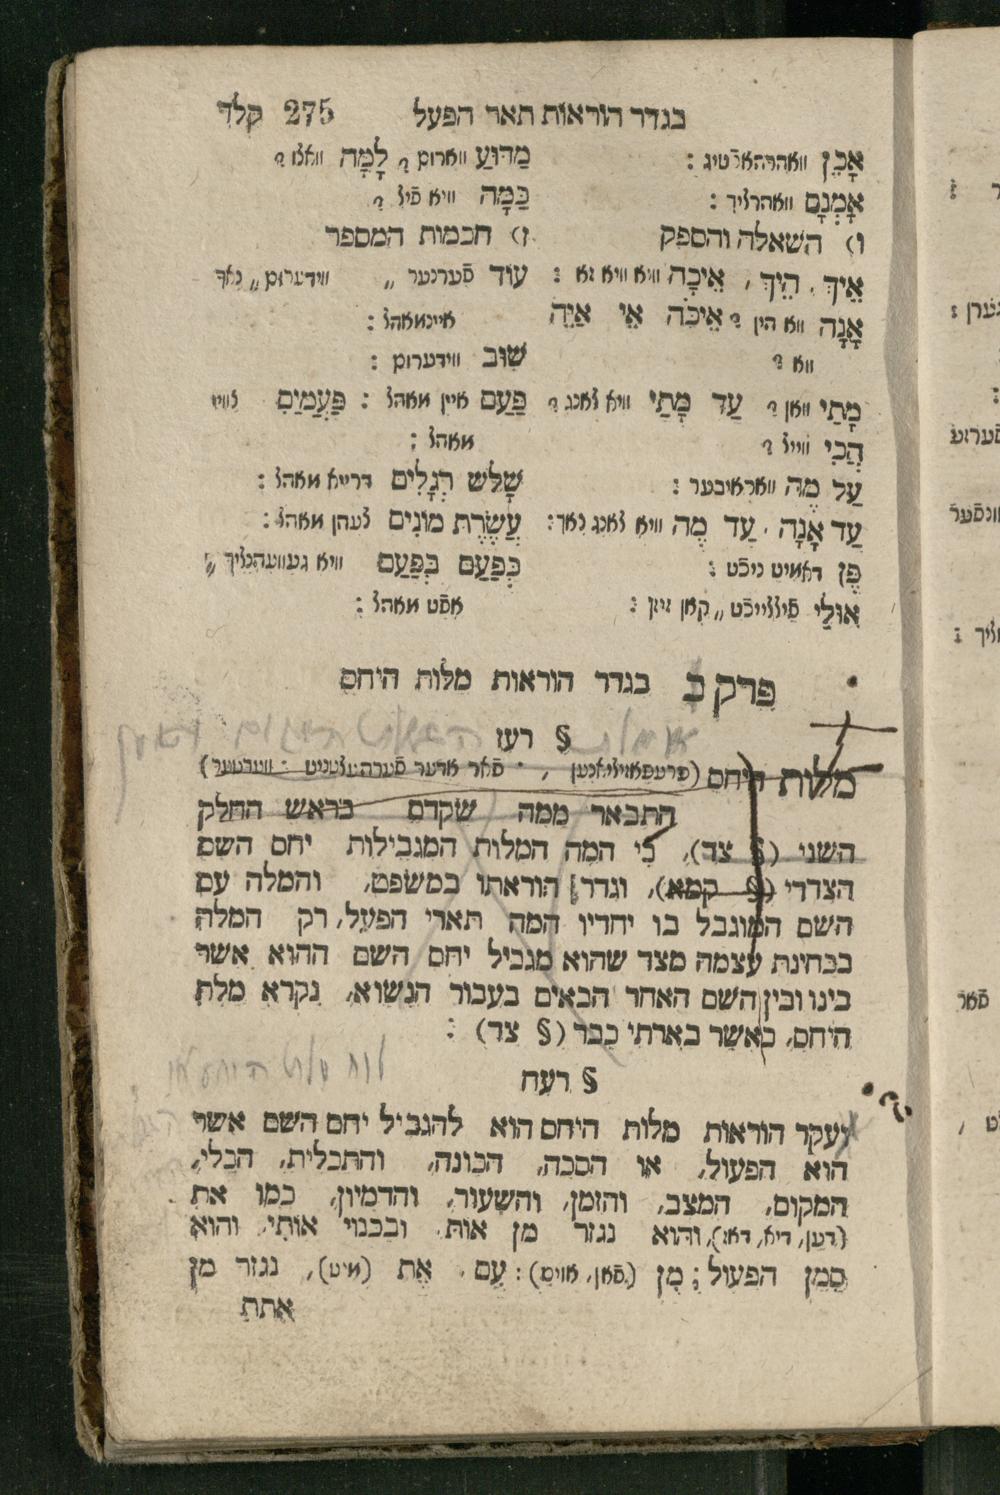 בגדר הוראות תאר הפעל 275 קלד
אָכֵן וואהרהאפֿטיג :
אָמְנָם וואהרליך :
ו) השאלה והספק
אֵיךְ, הֵיךְ, אֵיכָה וויא וויא זא :
אָנָה וואו הין ? אֵיכֹה אֵי אַיֵּה
וואו ?
מָתַי וואן ? עַד מָתַי וויא לאנג ?
הֲכִי ווייל ?
עַל מֶה וואריבער :
עַד אָנָה, עַד מֶה וויא לאנג נאך:
פֶּן דאמיט ניכֿט :
אוּלַי פֿיללייכֿט „ קאן זיין :
מַדּוּעַ ווארום ? לָמָּה וואצו ?
כַּמָּה וויא פֿיל ?
ז) חכמות המספר
עוֹד פֿערנער „ ווידערום „ נאך
איינמאהל :
שׁוּב ווידערום :
פַּעַם איין מאהל : פַּעֲמַיִם צוויי
מאהל :
שָׁלֹשׁ רְגָלִים דרייא מאהל :
עֲשֶׂרֶת מוֹנִים צעהן מאהל :
כְּפַעַם בְּפַעַם וויא געוועהנליך „
אפֿט מאהל :
פרק ב בגדר הוראות מלות היחס
§ רעז
מלות היחס (פרעפאזיציאנען, פֿאר אדער פֿערהעלטניס ווערטער)
התבאר ממה שקדם בראש החלק
השני (§ צד), כי המה המלות המגבילות יחס השם
הצדדי (§ קמא), וגדר הוראתו במשפט, והמלה עם
השם המוגבל בו יחדיו המה תארי הפעל, רק המלה
בבחינת עצמה מצד שהוא מגביל יחס השם ההוא אשר
בינו ובין השם האחר הבאים בעבור הנשוא, נקרא מלת
היחס, כאשר בארתי כבר (§ צד) :
§ רעח
ועקר הוראות מלות היחס הוא להגביל יחס השם אשר
הוא הפעול, או הסבה, הכונה, והתכלית, הכלי,
המקום, המצב, והזמן, והשעור, והדמיון, כמו את
(דען, דיא, דאז), והוא נגזר מן אות ובכנוי אותי, והוא
סמן הפעול ; מִן (פֿאן, אויס) : עִם, אֵת (מיט), נגזר מן
אתת